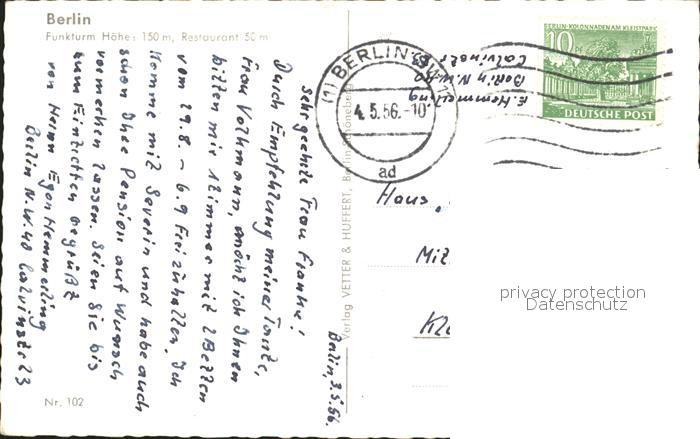 Berlin
Funkturm Höhe: 150 m, Restaurant 50 m
Berlin, 3.5.56.
sehr geehrte Frau Franke!
Durch Empfehlung meiner Tante,
Frau Volkmann, möcht ich Ihnen
bitten mir 1 Zimmer mit 2 Betten
vom 29.8. - 6.9 Frei zuhalten. Ich
komme mit Severin und habe auch
schon Ihre Pension auf Wunsch
vormerken lassen. Seien Sie bis
zum Eintreffen begrüßt
von Herrn Egon Hemmerling
Berlin N.W.40 Calvinstr 23
Nr. 102
Verlag VETTER & HUFFERT, Berlin-Schöneberg
(1) BERLIN
4.5.56.-10
ad
E. Hemmerling
Berlin N.W.40
Calvinstr 23
BERLIN-KOLONNADEN AM KLEISTPARK
10 Pf
DEUTSCHE POST
Haus „
Mit
privacy protection
Datenschutz